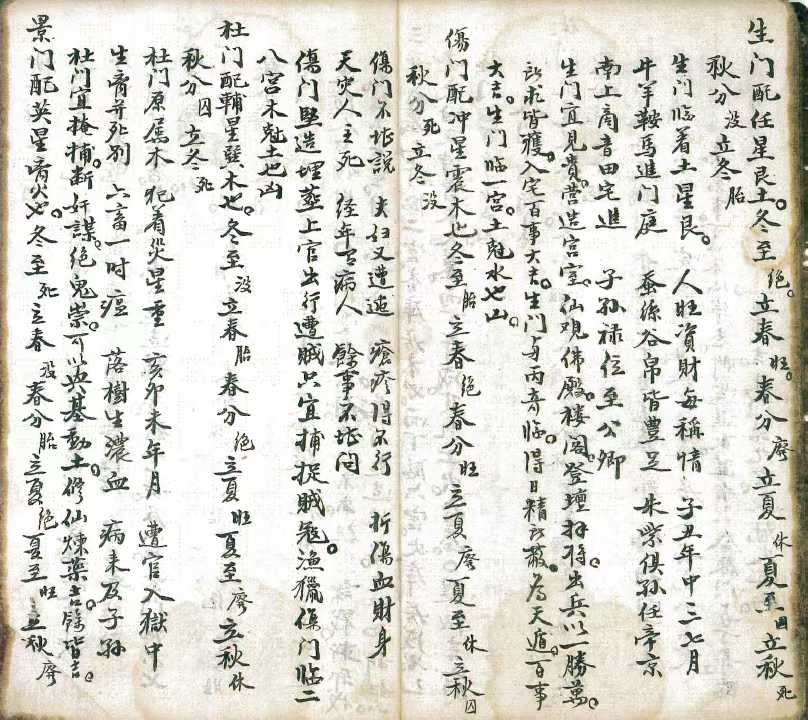 生门配任星艮土。冬至绝。立春旺。春分廢立夏休夏至囚立秋死
秋分没立冬胎
生门临着土星艮。人旺資財每稱情子丑年中三七月
牛羊鞍馬進门庭蚕絲谷帛皆豊足朱紫俱孙任帝京
南上商音田宅進子孫禄位至公卿
生门宜見貴。营造宫室。仙观佛殿。楼阁。登壇拜将。出兵以一勝萬。
所求皆獲。入宅百事大吉。生门与丙奇临。得日精所蔽。為天遁。百事
大吉。生门临一宫。土尅水也凶。
傷门配冲星震木也冬至胎立春绝春分旺立夏廢夏至休立秋囚
秋分死立冬没
傷门不堪説夫妇又遭迍瘡疼行不得折傷血財身
天灾人主死经年有病人餘事不堪问
傷门竖造埋葬上官出行遭贼只宜捕捉贼冦漁獵傷门临二
八宫木尅土也凶
杜门配輔星巽木也。冬至没立春胎春分绝立夏旺夏至廢立秋休
秋分囚立冬死
杜门原属木犯着災星重亥卯未年月遭官入獄中
生离并死别六畜一时瘟落樹生濃血病来及子孙
杜门宜掩捕。断奸謀。绝鬼祟。可以興基動土。修仙煉藥吉餘皆吉。
景门配英星离火也冬至死立春没春分胎立夏绝夏至旺立秋廢